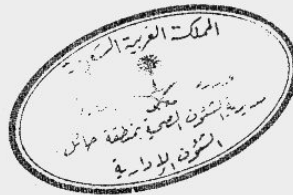 المملكة العربية السعودية
مديرية الشئون الصحية بمنطقة حائل
الشئون الإدارية